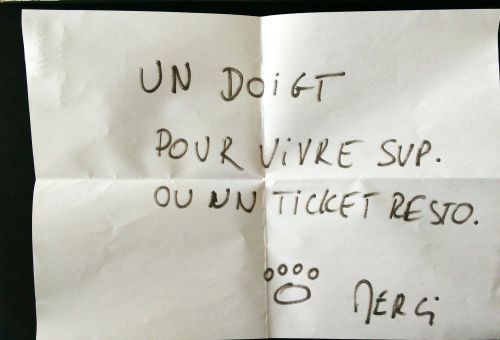 UN DOiGT
POUR ViVRE SUP.
OU NN TICKET RESTO.
MERCi